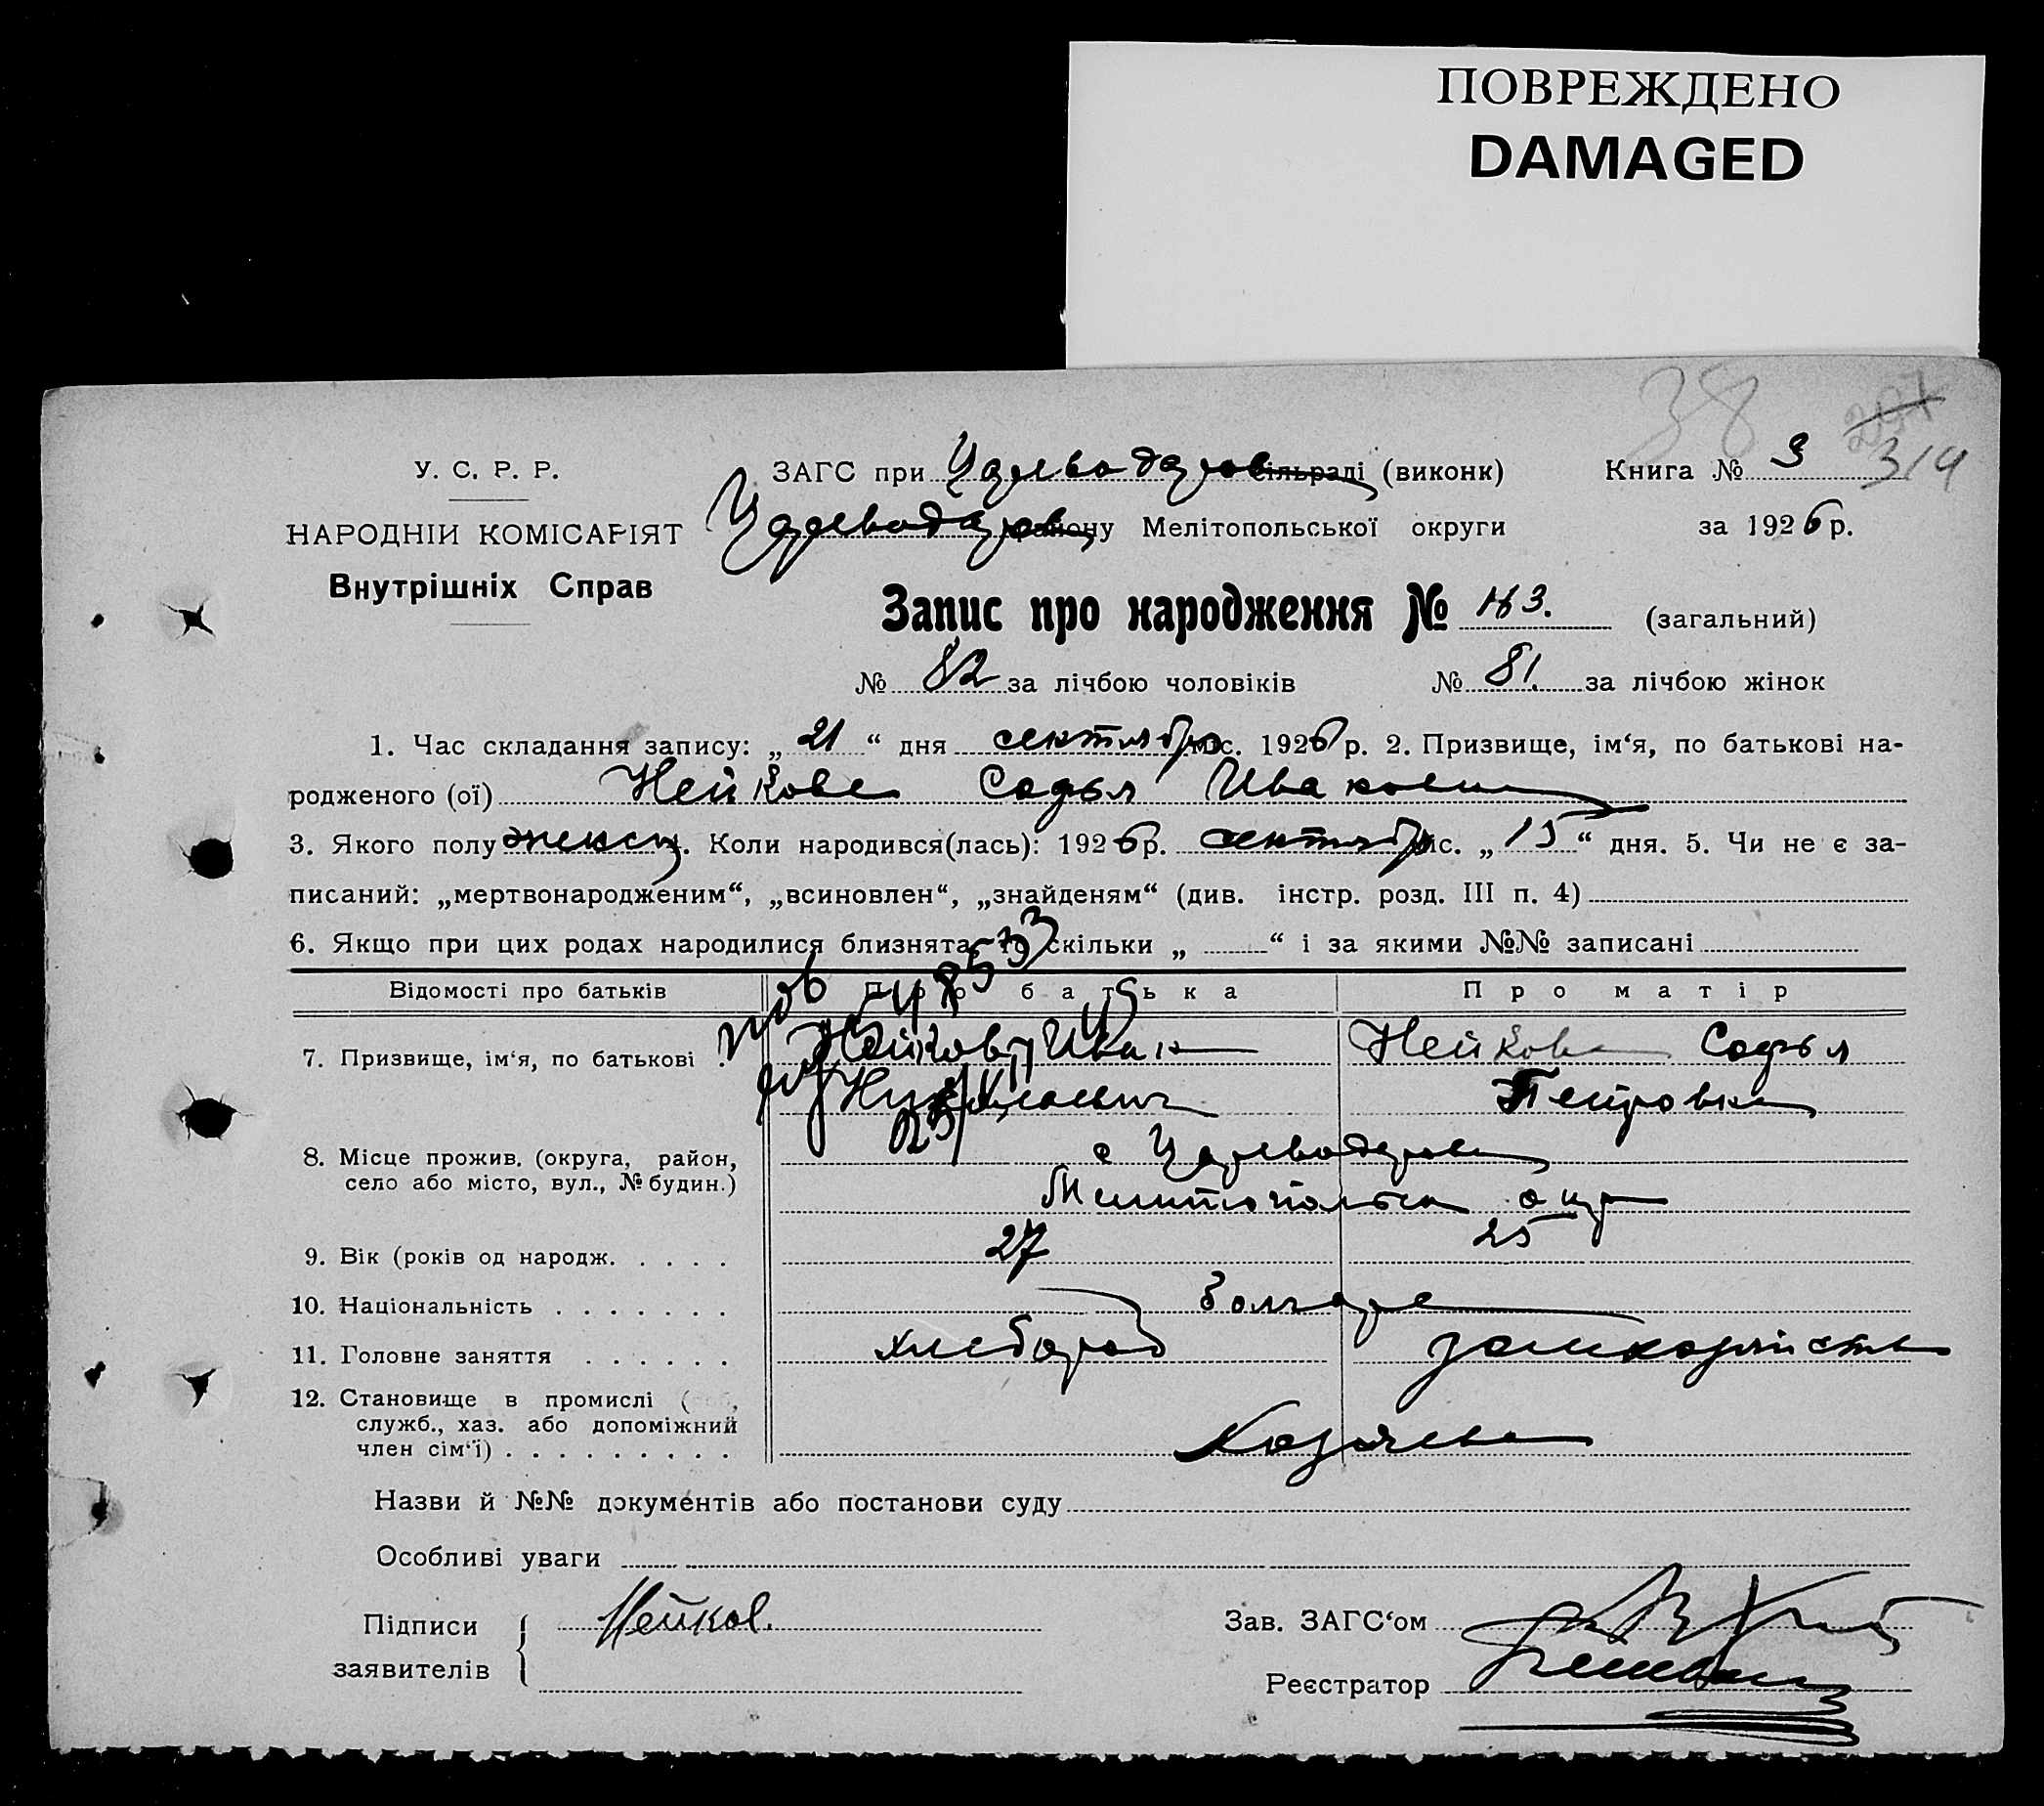 ПОВРЕЖДЕНО
DAMAGED
38
314
У. С. Р. Р.
ЗАГС при Цареводаров сільраді (виконк)
Книга № 3
НАРОДНІЙ КОМІСАРІЯТ
Цареводаров району Мелітопольської округи
за 1926 р.
Внутрішніх Справ
Запис про народження № 163. (загальний)
№ 82 за лічбою чоловіків № 81. за лічбою жінок
1. Час складання запису: „ 21 “ дня сентября міс. 1926 р. 2. Призвище, ім‘я, по батькові на-
родженого (ої) Нейкова Софья Ивановна
3. Якого полу женск. Коли народився(лась): 1926 р. сентября міс. „ 15 “ дня. 5. Чи не є за-
писаний: „мертвонародженим“, „всиновлен“, „знайденям“ (див. інстр. розд. III п. 4)
6. Якщо при цих родах народилися близнята, то скільки „ “ і за якими №№ записані
Відомості про батьків Про батька Про матір
7. Призвище, ім‘я, по батькові Нейков Иван Нейкова Софья
Николаевич Петровна
8. Місце прожив. (округа, район, с Цареводаровка
село або місто, вул., № будин.) Мелитопольск окр
9. Вік (років од народж. 27 25
10. Національність болгаре
11. Головне заняття хлебороб домохозяйств
12. Становище в промислі (
служб., хаз. або допоміжний
член сім‘ї) Хозяева
Назви й №№ документів або постанови суду
Особливі уваги
Підписи Нейков.
заявителів
Зав. ЗАГС‘ом
Реєстратор